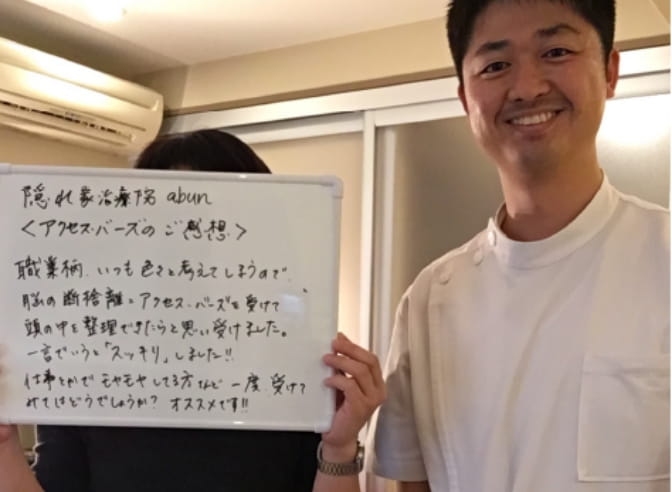 隠れ家治療院 abun
＜アクセス・バーズのご感想＞
職業柄、いつも色々と考えてしまうので、
脳の断捨離=アクセス・バーズを受けて
頭の中を整理できたらと思い受けました。
一言でいうと「スッキリ」しました!!
仕事とかでモヤモヤしてる方など一度、受けて
みてはどうでしょうか? オススメです!!